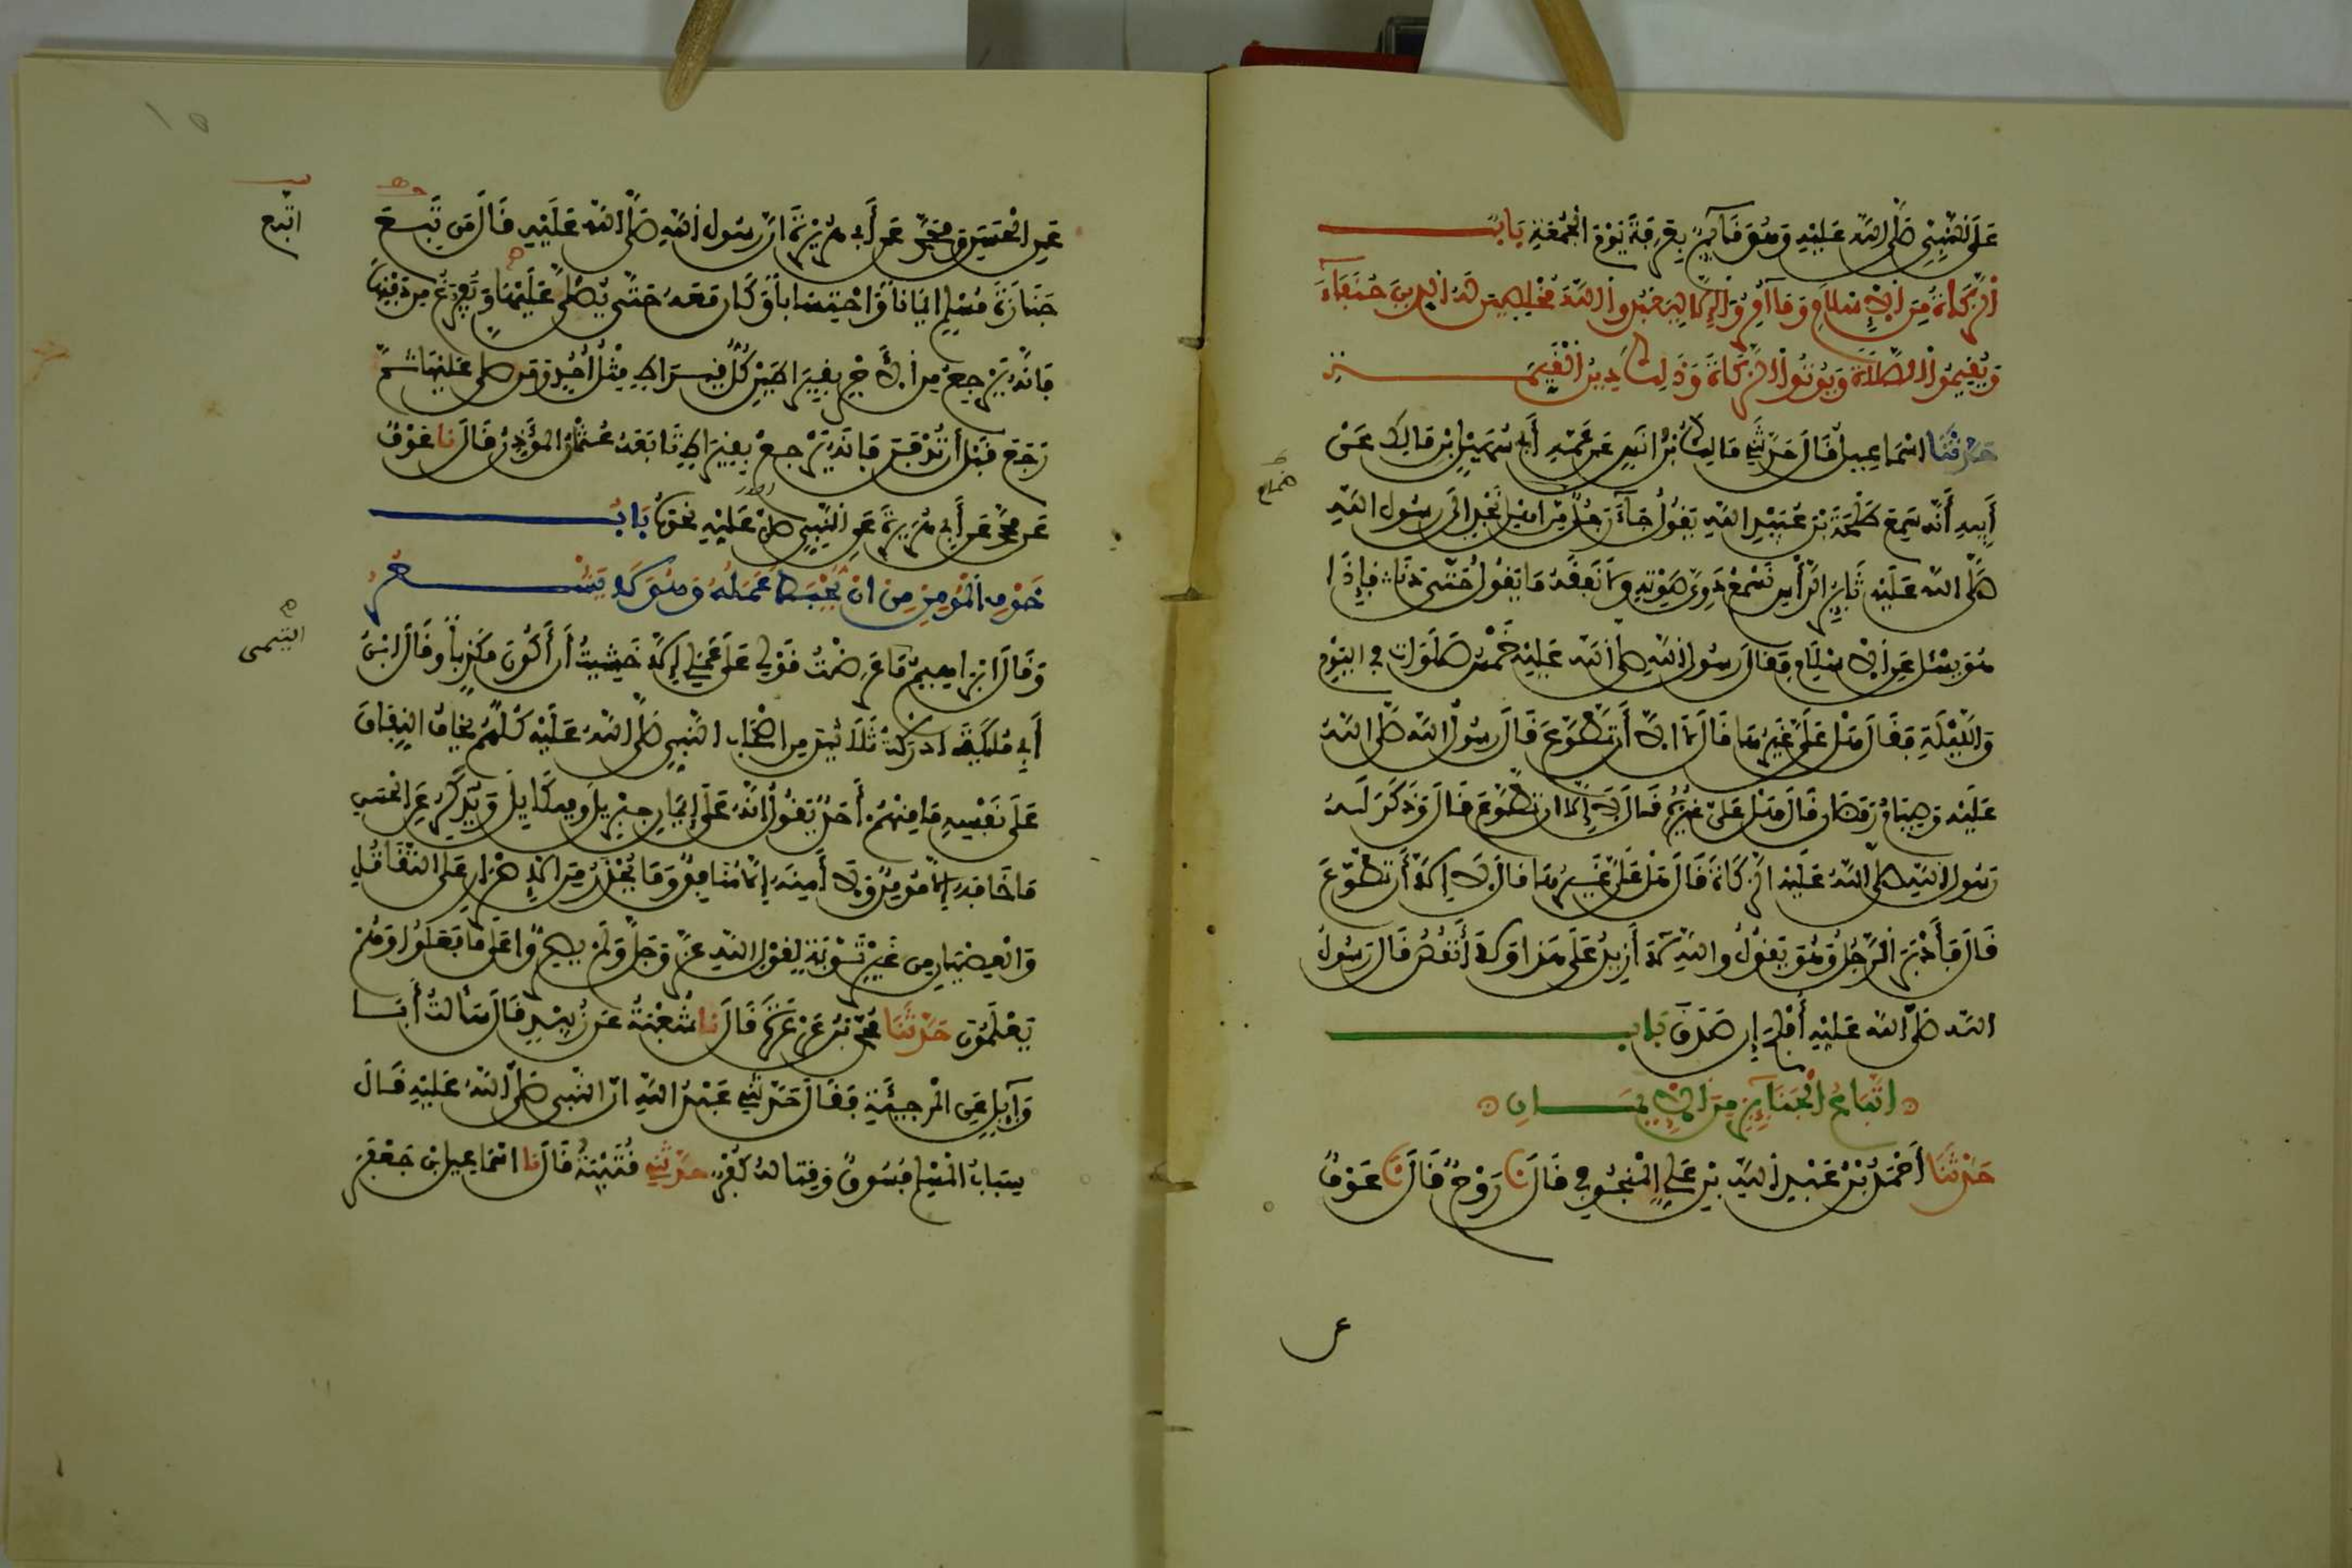 عَلَى النَّبِيِّ صَلَّى اللهُ عَلَيْهِ وَهُوَ قَآئِمٌ بِعَرَفَةَ يَوْمَ الْجُمُعَةِ بَابُ
الزَّكَاةُ مِنَ الْإِسْلَامِ وَمَا أُمِرُوا إِلَّا لِيَعْبُدُوا اللهَ مُخْلِصِينَ لَهُ الدِّينَ حُنَفَآءَ
وَيُقِيمُوا الصَّلَاةَ وَيُوتُوا الزَّكَاةَ وَذَلِكَ دِينُ الْقَيِّمَةِ
حَدَّثَنَا اسْمَاعِيلُ قَالَ حَدَّثَنِي مَالِكُ بْنُ انَسٍ عَنْ عَمِّهِ أَبِي سُهَيْلِ بْنِ مَالِكٍ عَنْ
أَبِيهِ أَنَّهُ سَمِعَ طَلْحَةَ بْنَ عُبَيْدِ اللهِ يَقُولُ جَآءَ رَجُلٌ مِنَ اهْلِ نَجْدٍ الَى رَسُولِ اللهِ
صَلَّى اللهُ عَلَيْهِ ثَايِرُ الرَّأْسِ نَسْمَعُ دَوِيَّ صَوْتِهِ وَلَا نَفْقَهُ مَا يَقُولُ حَتَّى دَنَا فَإِذَا
هُوَ يَسْئَلُ عَنِ الْإِسْلَامِ فَقَالَ رَسُولُ اللهِ صَلَّى اللهُ عَلَيْهِ خَمْسُ صَلَوَاتٍ فِي الْيَوْمِ
وَاللَّيْلَةِ فَقَالَ هَلْ عَلَيَّ غَيْرُهَا قَالَ لَا إِلَّا أَنْ تَطَوَّعَ قَالَ رَسُولُ اللهِ صَلَّى اللهُ
عَلَيْهِ وَصِيَامُ رَمَضَانَ قَالَ هَلْ عَلَيَّ غَيْرُهُ قَالَ لَا إِلَّا انْ تَطَوَّعَ قَالَ وَذَكَرَ لَهُ
رَسُولُ اللهِ صَلَّى اللهُ عَلَيْهِ الزَّكَاةَ قَالَ هَلْ عَلَيَّ غَيْرُهَا قَالَ لَا إِلَّا أَنْ تَطَوَّعَ
قَالَ فَأَدْبَرَ الرَّجُلُ وَهُوَ يَقُولُ وَاللهِ لَا أَزِيدُ عَلَى هَذَا وَلَا أَنْقُصُ قَالَ رَسُولُ
اللهِ صَلَّى اللهُ عَلَيْهِ أَفْلَحَ إِنْ صَدَقَ بَابُ
اتِّبَاعُ الْجَنَآئِزِ مِنَ الْإِيمَانِ
حَدَّثَنَا أَحْمَدُ بْنُ عَبْدِ اللهِ بْنِ عَلِيٍّ الْمَنْجُوفِي قَالَ نَا رَوْحٌ قَالَ نَا عَوْفٌ
عَنِ الْحَسَنِ وَمُحَمَّدٍ عَنْ أَبِي هُرَيْرَةَ انَّ رَسُولَ اللهِ صَلَّى اللهُ عَلَيْهِ قَالَ مَنْ تَبِعَ
اتَّبَعَ
جَنَازَةَ مُسْلِمٍ ايمَاناً وَاحْتِسَاباً وَكَانَ مَعَهُ حَتَّى يُصَلَّى عَلَيْهَا وَيُفْرَغَ مِنْ دَفْنِهَا
فَإِنَّهُ يَرْجِعُ مِنَ الْأَجْرِ بِقِيرَاطَيْنِ كُلُّ قِيرَاطٍ مِثْلُ أُحُدٍ وَمَنْ صَلَّى عَلَيْهَا ثُمَّ
رَجَعَ قَبْلَ أَنْ تُدْفَنَ فَإِنَّهُ يَرْجِعُ بِقِيرَاطٍ تَابَعَهُ عُثْمَانُ الْمُؤَذِّنُ قَالَ نَا عَوْفٌ
عَنْ مُحَمَّدٍ عَنْ أَبِي هُرَيْرَةَ عَنِ النَّبِيِّ صَلَّى عَلَيْهِ نَحْوَهُ بَابُ
خَوْفِ الْمُومِنِ مِنَ انْ يُحْبَطَ عَمَلُهُ وَهُوَ لَا يَشْعُرُ
وَقَالَ ابْرَاهِيمُ مَا عَرَضْتُ قَوْلِي عَلَى عَمَلِي إِلَّا خَشِيتُ أَنْ أَكُونَ مُكَذِّباً وَقَالَ ابْنُ
التيمي
أَبِي مُلَيْكَةَ ادْرَكْتُ ثَلَاثِينَ مِنَ اصْحَابِ النَّبِيِّ صَلَّى اللهُ عَلَيْهِ كُلُّهُمْ يَخَافُ النِّفَاقَ
عَلَى نَفْسِهِ مَا مِنْهُمْ أَحَدٌ يَقُولُ انَّهُ عَلَى إِيمَانِ جِبْرِيلَ وَمِيكَايِلَ وَيُذْكَرُ عَنِ الْحَسَنِ
مَا خَافَهُ إِلَّا مُومِنٌ وَلَا أَمِنَهُ إِلَّا مُنَافِقٌ وَمَا يُحْذَرُ مِنَ الْإِصْرَارِ عَلَى التَّقَاتُلِ
وَالْعِصْيَانِ مِنْ غَيْرِ تَوْبَةٍ لِقَوْلِ اللهِ عَزَّ وَجَلَّ وَلَمْ يُصِرُّوا عَلَى مَا فَعَلُوا وَهُمْ
يَعْلَمُونَ حَدَّثَنَا مُحَمَّدُ بْنُ عَرْعَرَةَ قَالَ نَا شُعْبَةُ عَنْ زُبَيْدٍ قَالَ سَأَلْتُ أَبَا
وَآيِلٍ عَنِ الْمُرْجِئَةِ فَقَالَ حَدَّثَنِي عَبْدُ اللهِ انَّ النَّبِيَّ صَلَّى اللهُ عَلَيْهِ قَالَ
سِبَابُ الْمُسْلِمِ فُسُوقٌ وَقِتَالُهُ كُفْرٌ حَدَّثَنِي قُتَيْبَةُ قَالَ نَا اسْمَاعِيلُ بْنُ جَعْفَرٍ